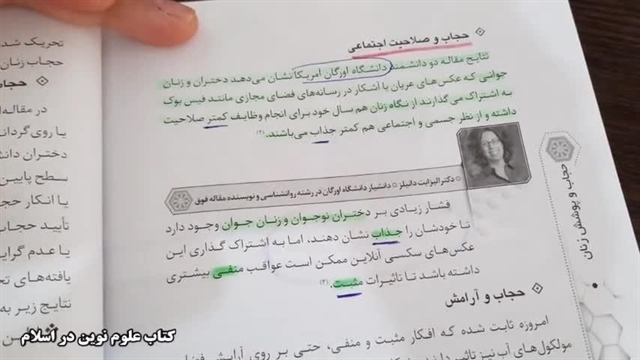 حجاب و صلاحیت اجتماعی
نتایج مقاله دو دانشمند دانشگاه اورگان امریکا نشان می‌دهد دختران و زنان
جوانی که عکس‌های عریان یا آشکار در رسانه‌های فضای مجازی مانند فیس بوک
به اشتراک می گذارند از نگاه زنان هم سال خود برای انجام وظایف کمتر صلاحیت
داشته و از نظر جسمی و اجتماعی هم کمتر جذاب می‌باشند.(۲)
دکتر الیزابت دانیلز * دانشیار دانشگاه اورگان در رشته روانشناسی و نویسنده مقاله فوق
فشار زیادی بر دختران نوجوان و زنان جوان وجود دارد
تا خودشان را جذاب نشان دهند، اما به اشتراک گذاری این
عکس‌های سکسی آنلاین ممکن است عواقب منفی بیشتری
داشته باشد تا تاثیرات مثبت.(۳)
حجاب و آرامش
امروزه ثابت شده که افکار مثبت و منفی، حتی بر روی آرایش
مولکول‌های آب نیز تاثیر
حجاب و پوشش زنان
تحریک شده
حجاب زنان
حجا
در مقاله
یا روی گردان
دختران دانش
سطح پایین
یا انکار حجا
تأیید حجاب
یا عدم گرایـ
یافته‌های تح
نتایج زیر به
کتاب علوم نوین در اسلام